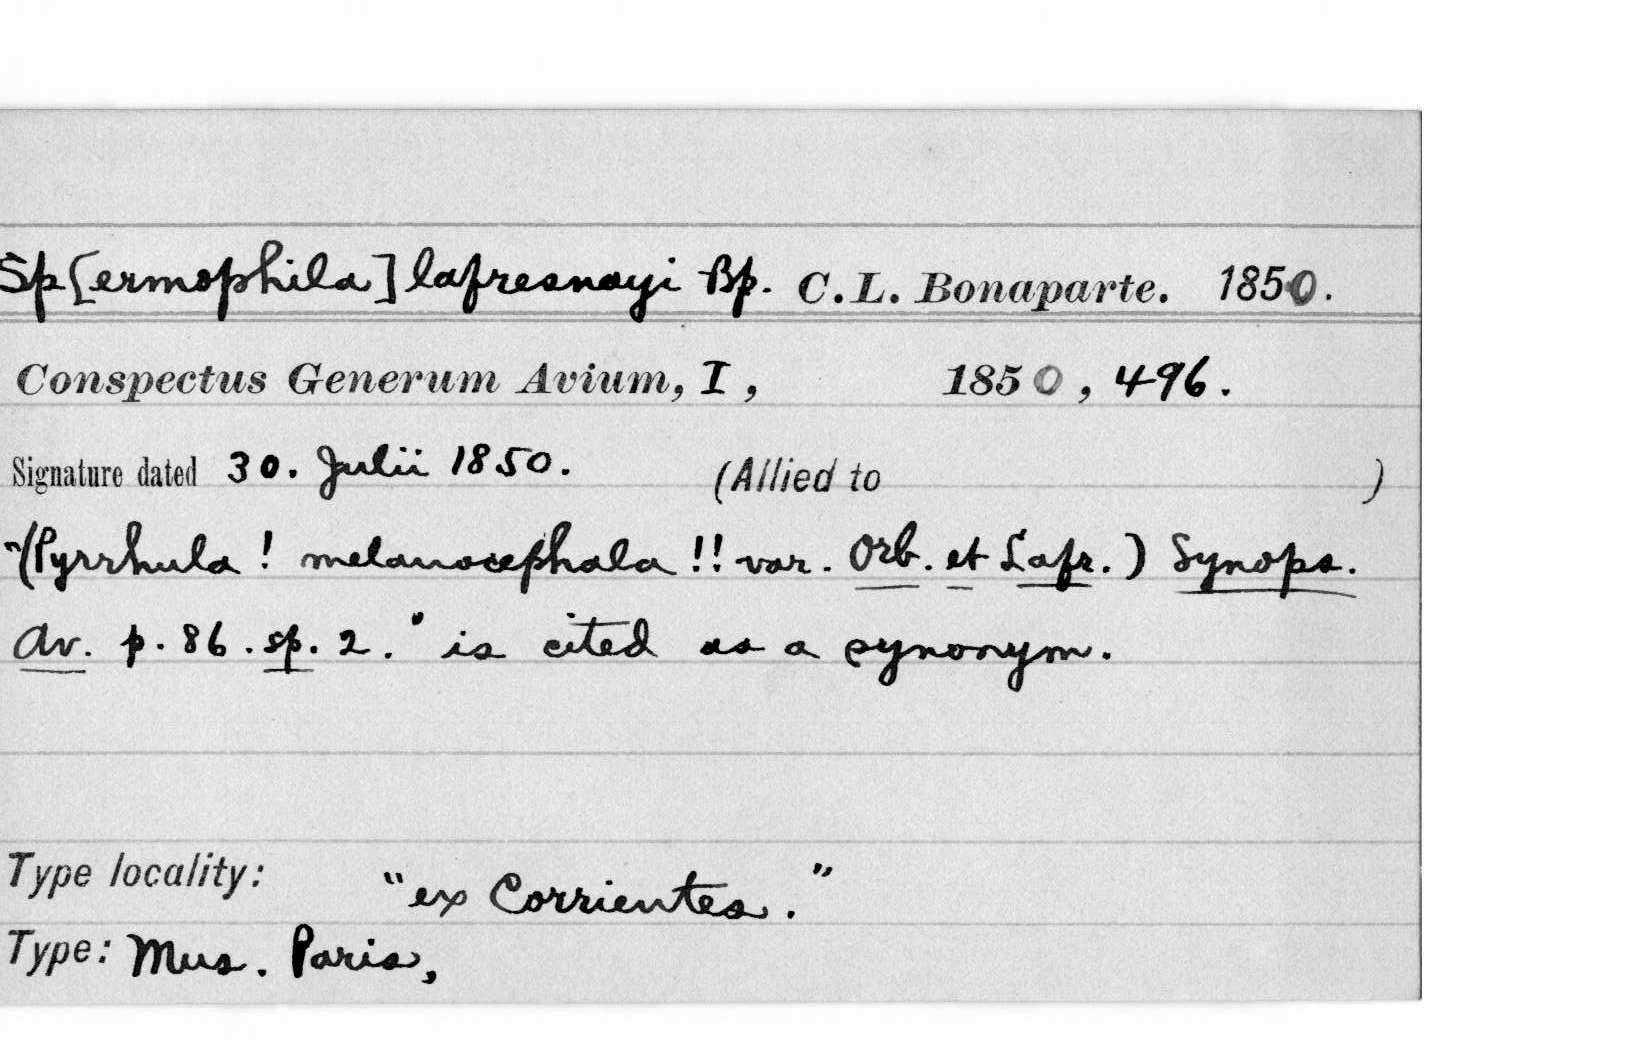 Sp[ermophila] lafresnayi Bp. C.L. Bonaparte. 1850.
Conspectus Generum Avium, I, 1850, 496.
Signature dated 30. Julii 1850. (Allied to )
"(Pyrrhula! melanocephala!! var. Orb. et Lafr.) Synops.
Av. p. 86. sp. 2." is cited as a synonym.
Type locality: "ex Corrientes."
Type: Mus. Paris,